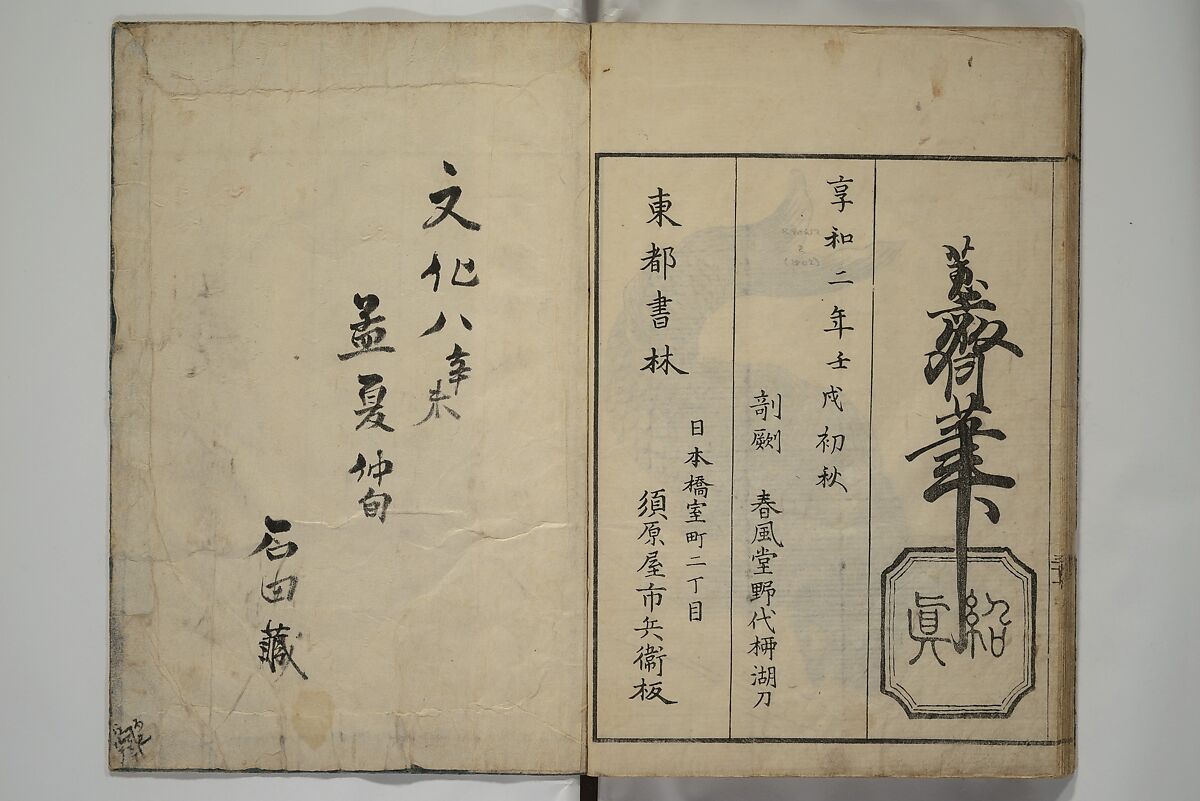 蕙齋筆
紹眞
享和二年壬戌初秋
剞劂 春風堂野代柳湖刀
東都書林
日本橋室町二丁目
須原屋市兵衞板
文化八辛未
孟夏仲旬
石田藏